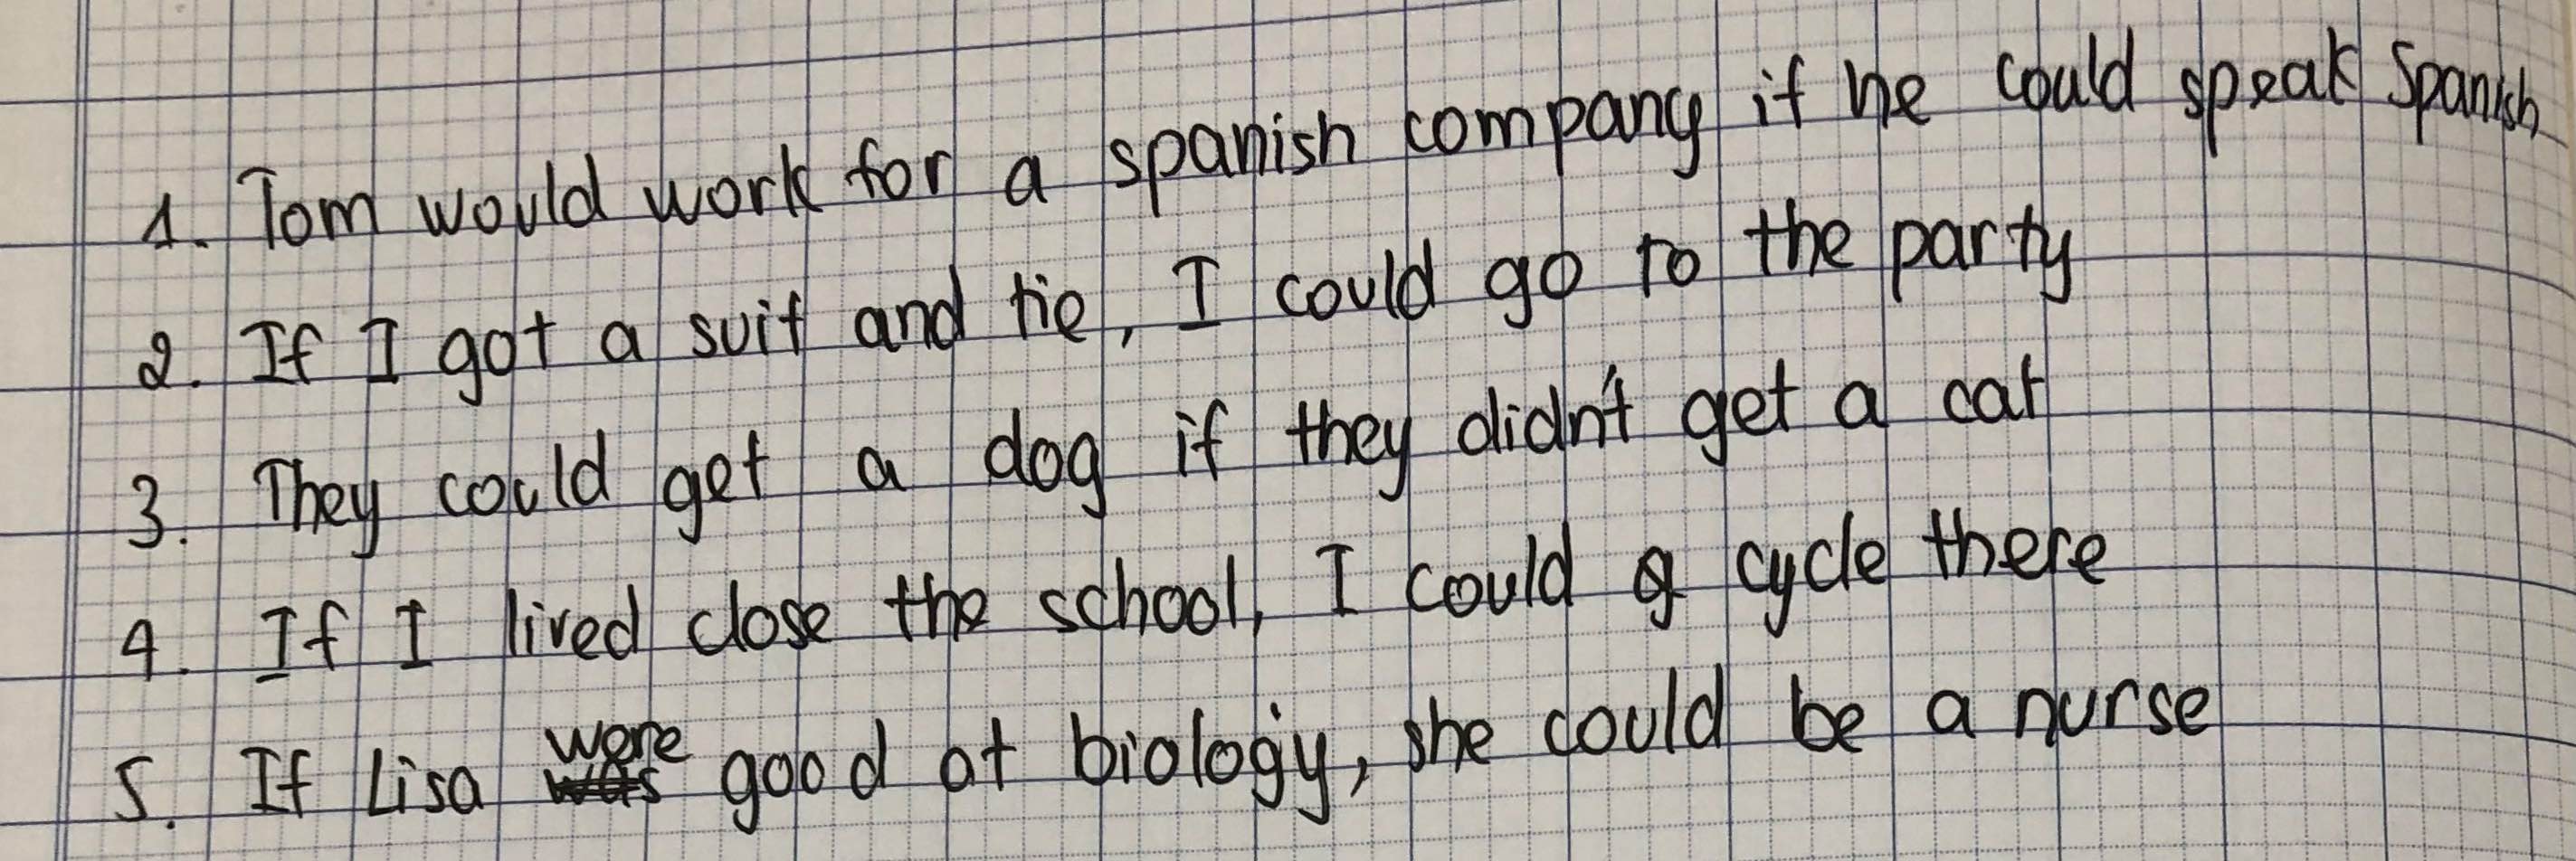 1. Tom would work for a spanish company if he could speak Spanish
2. If I got a suit and tie, I could go to the party
3. They could get a dog if they didn't get a cat
4. If I lived close the school, I could cycle there
were
5. If Lisa was good at biology, she could be a nurse